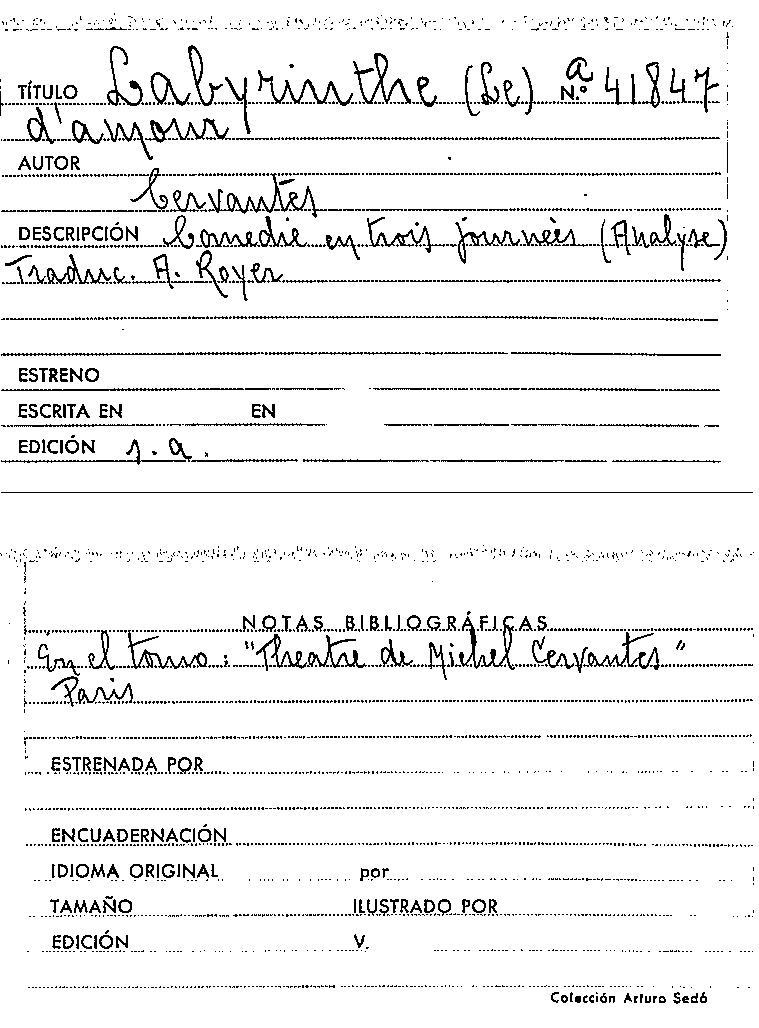 TÍTULO Labyrinthe (Le) N.º a 41847
d'amour
AUTOR
Cervantes
DESCRIPCIÓN Comedie en trois journées (Analyse)
Traduc. A. Royer
ESTRENO
ESCRITA EN EN
EDICIÓN s.a.
NOTAS BIBLIOGRÁFICAS
En el tomo: "Theatre de Michel Cervantes"
Paris
ESTRENADA POR
ENCUADERNACIÓN
IDIOMA ORIGINAL por
TAMAÑO ILUSTRADO POR
EDICIÓN V.
Colección Arturo Sedó